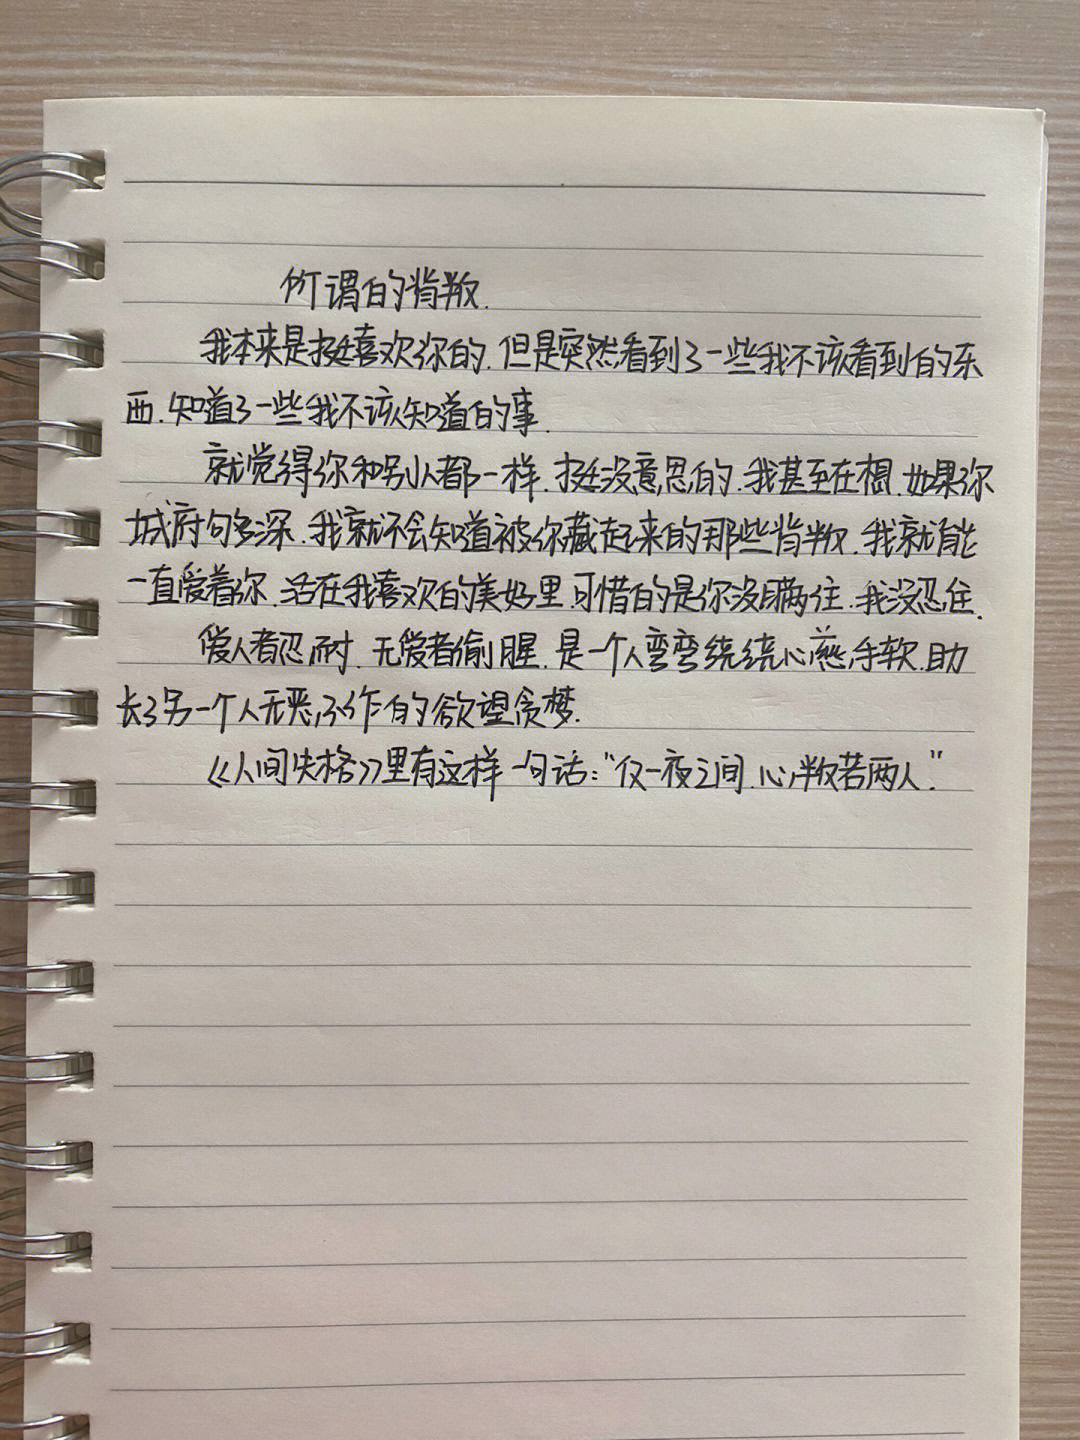 所谓的背叛.
我本来是挺喜欢你的.但是突然看到了一些我不该看到的东
西.知道了一些我不该知道的事.
就觉得你和别人都一样.挺没意思的.我甚至在想.如果你
城府句多深.我就不会知道被你藏起来的那些背叛.我就能
一直爱着你.活在我喜欢的美好里.可惜的是你没瞒住.我没忍住.
爱人者忍耐.无爱者偷腥.是一个人弯弯绕绕心慈手软.助
长了另一个人无恶不作的欲望贪梦.
《人间失格》里有这样一句话:"仅一夜之间.心判若两人."